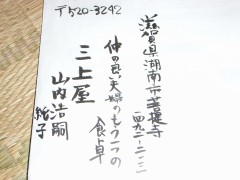 〒520-3242
滋賀県湖南市菩提寺
一九二-二三
仲の良い夫婦のもう一つの
食卓
三上屋
山内浩嗣
純子